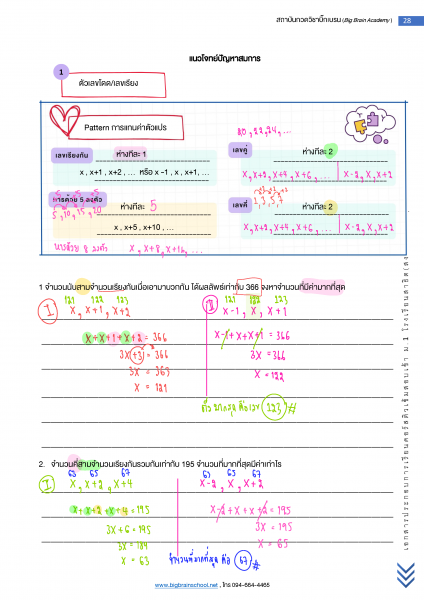 สถาบันกวดวิชาบิ๊กเบรน (Big Brain Academy) 28
แนวโจทย์ปัญหาสมการ
1
ตัวเลขโดด/เลขเรียง
Pattern การแทนค่าตัวแปร
20, 22, 24, ...
เลขเรียงกัน ห่างทีละ 1
x , x+1 , x+2 , … หรือ x -1 , x , x+1, …
เลขคู่ ห่างทีละ 2
x, x+2, x+4, x+6, ... x-2, x, x+2
หารด้วย 5 ลงตัว ห่างทีละ 5
5, 10, 15, 20
x , x+5 , x+10 …
เลขคี่ ห่างทีละ 2
1, 3, 5, 7
x, x+2, x+4, x+6, ... x-2, x, x+2
หารด้วย 8 ลงตัว x, x+8, x+16, ...
1 จำนวนนับสามจำนวนเรียงกันเมื่อเอามาบวกกัน ได้ผลลัพธ์เท่ากับ 366 จงหาจำนวนที่มีค่ามากที่สุด
121 122 123
I x, x+1, x+2
x+x+1+x+2 = 366
3x+3 = 366
3x = 363
x = 121
121 122 123
II x-1, x, x+1
x-1+x+x+1 = 366
3x = 366
x = 122
123 #
2. จำนวนคี่สามจำนวนเรียงกันรวมกันเท่ากับ 195 จำนวนที่มากที่สุดมีค่าเท่าไร
63 65 67
I x, x+2, x+4
x+x+2+x+4 = 195
3x+6 = 195
3x = 189
x = 63
63 65 67
x-2, x, x+2
x-2+x+x+2 = 195
3x = 195
x = 65
จำนวนที่มากที่สุด คือ 67 #
www.bigbrainschool.net , โทร 094-664-4465